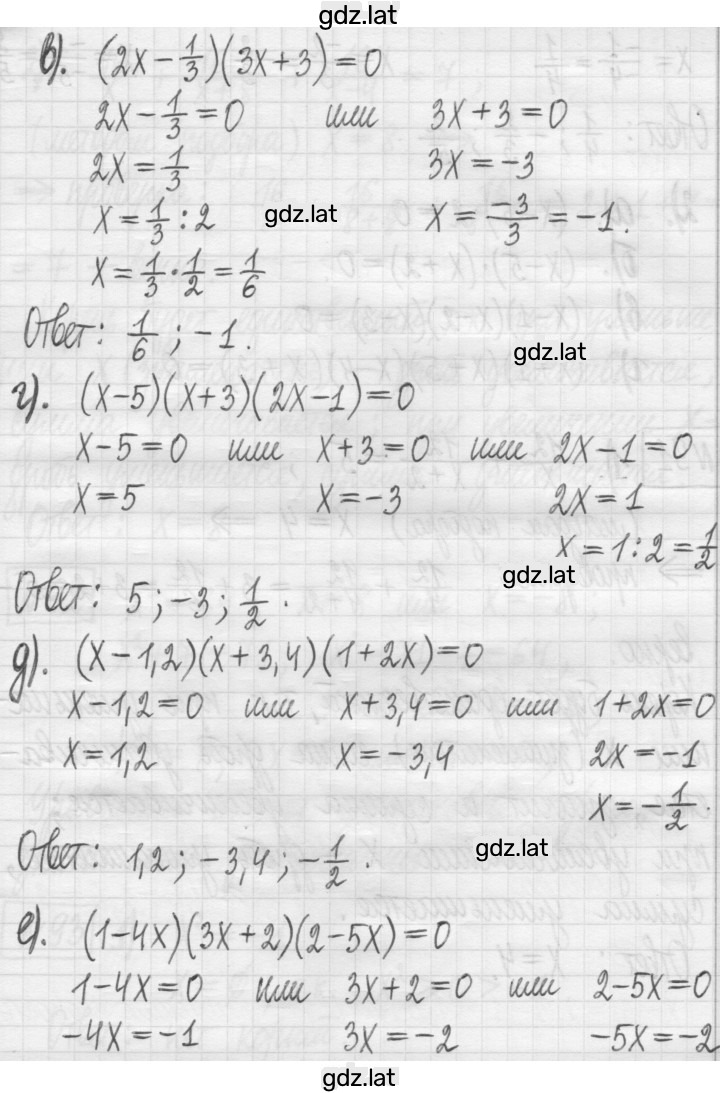 gdz.lat
в). (2x - 1/3)(3x+3)=0
2x - 1/3 = 0 или 3x+3=0
2x = 1/3 3x = -3
x = 1/3 : 2 gdz.lat x = -3/3 = -1.
x = 1/3 · 1/2 = 1/6
Ответ: 1/6 ; -1.
gdz.lat
г). (x-5)(x+3)(2x-1)=0
x-5=0 или x+3=0 или 2x-1=0
x=5 x=-3 2x=1
x=1:2=1/2
gdz.lat
Ответ: 5; -3; 1/2.
д). (x-1,2)(x+3,4)(1+2x)=0
x-1,2=0 или x+3,4=0 или 1+2x=0
x=1,2 x=-3,4 2x=-1
x=-1/2.
Ответ: 1,2; -3,4; -1/2. gdz.lat
е). (1-4x)(3x+2)(2-5x)=0
1-4x=0 или 3x+2=0 или 2-5x=0
-4x=-1 3x=-2 -5x=-2
gdz.lat